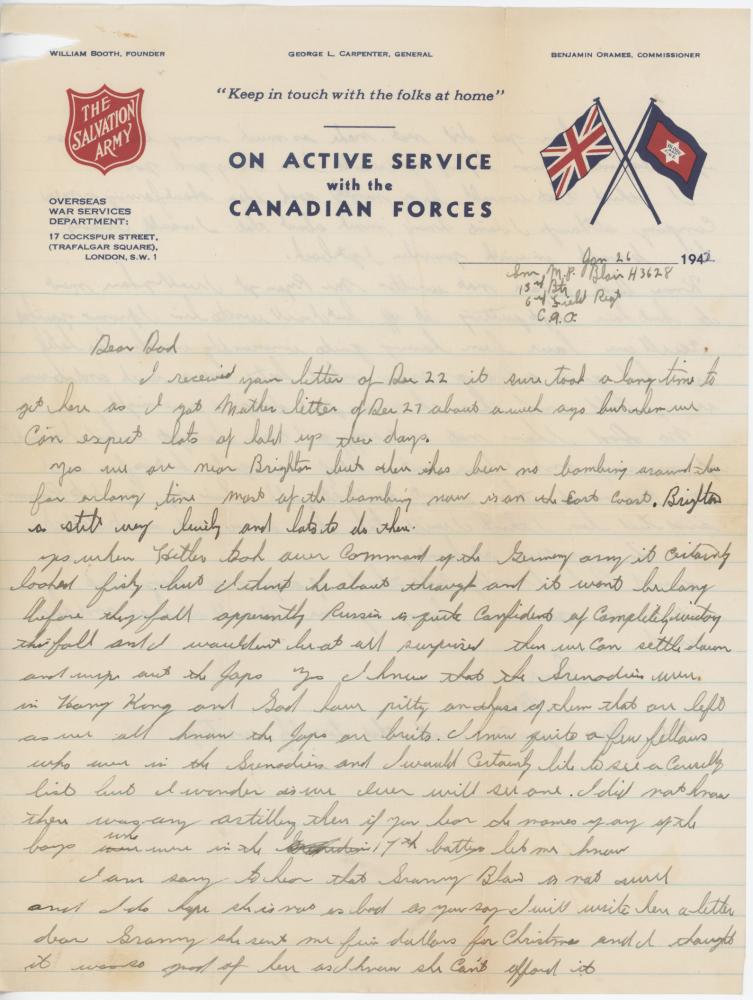 WILLIAM BOOTH, FOUNDER
GEORGE L. CARPENTER, GENERAL
BENJAMIN ORAMES, COMMISSIONER
THE
SALVATION
ARMY
"Keep in touch with the folks at home"
ON ACTIVE SERVICE
with the
CANADIAN FORCES
OVERSEAS
WAR SERVICES
DEPARTMENT:
17 COCKSPUR STREET,
(TRAFALGAR SQUARE),
LONDON, S.W. 1
Jan 26 1942
Gnr. M.P. Blair H3628
13rd Bty
6rd Field Regt
C.A.O.
Dear Dad
I received your letter of Dec 22 it sure took a long time to
get here as I got Mother letter of Dec 27 about a week ago but then we
Can expect lots of hold ups these days.
Yes we are near Brighton but there has been no bombing around there
for a long time most of the bombing now is on the East Coast. Brighton
is still very lively and lots to do there.
Yes when Hitler took over Command of the Germany army it certainly
looked fishy but I think he about through and it wont be long
before they fall apparently Russia is quite Confident of Complete victory
this fall and I wouldent be at all surprised then we Can settle down
and wipe out the Japs Yes I knew that the Grenadiers were
in Hong Kong and God have pitty on those of them that are left
as we all know the Japs are bruts. I know quite a few fellows
who were in the Grenadiers and I would Certainly like to see a Causilty
list but I wonder as we ever will see one. I did not know
there was any artillery there if you hear the names of any of the
boys who were in the 17th battery let me know
I am sorry to hear that Granny Blair is not well
and I do hope she is not as bad as you say I will write her a letter
dear Granny she sent me five dollars for Christmas and I thought
it was so good of her as I know she Can't afford it